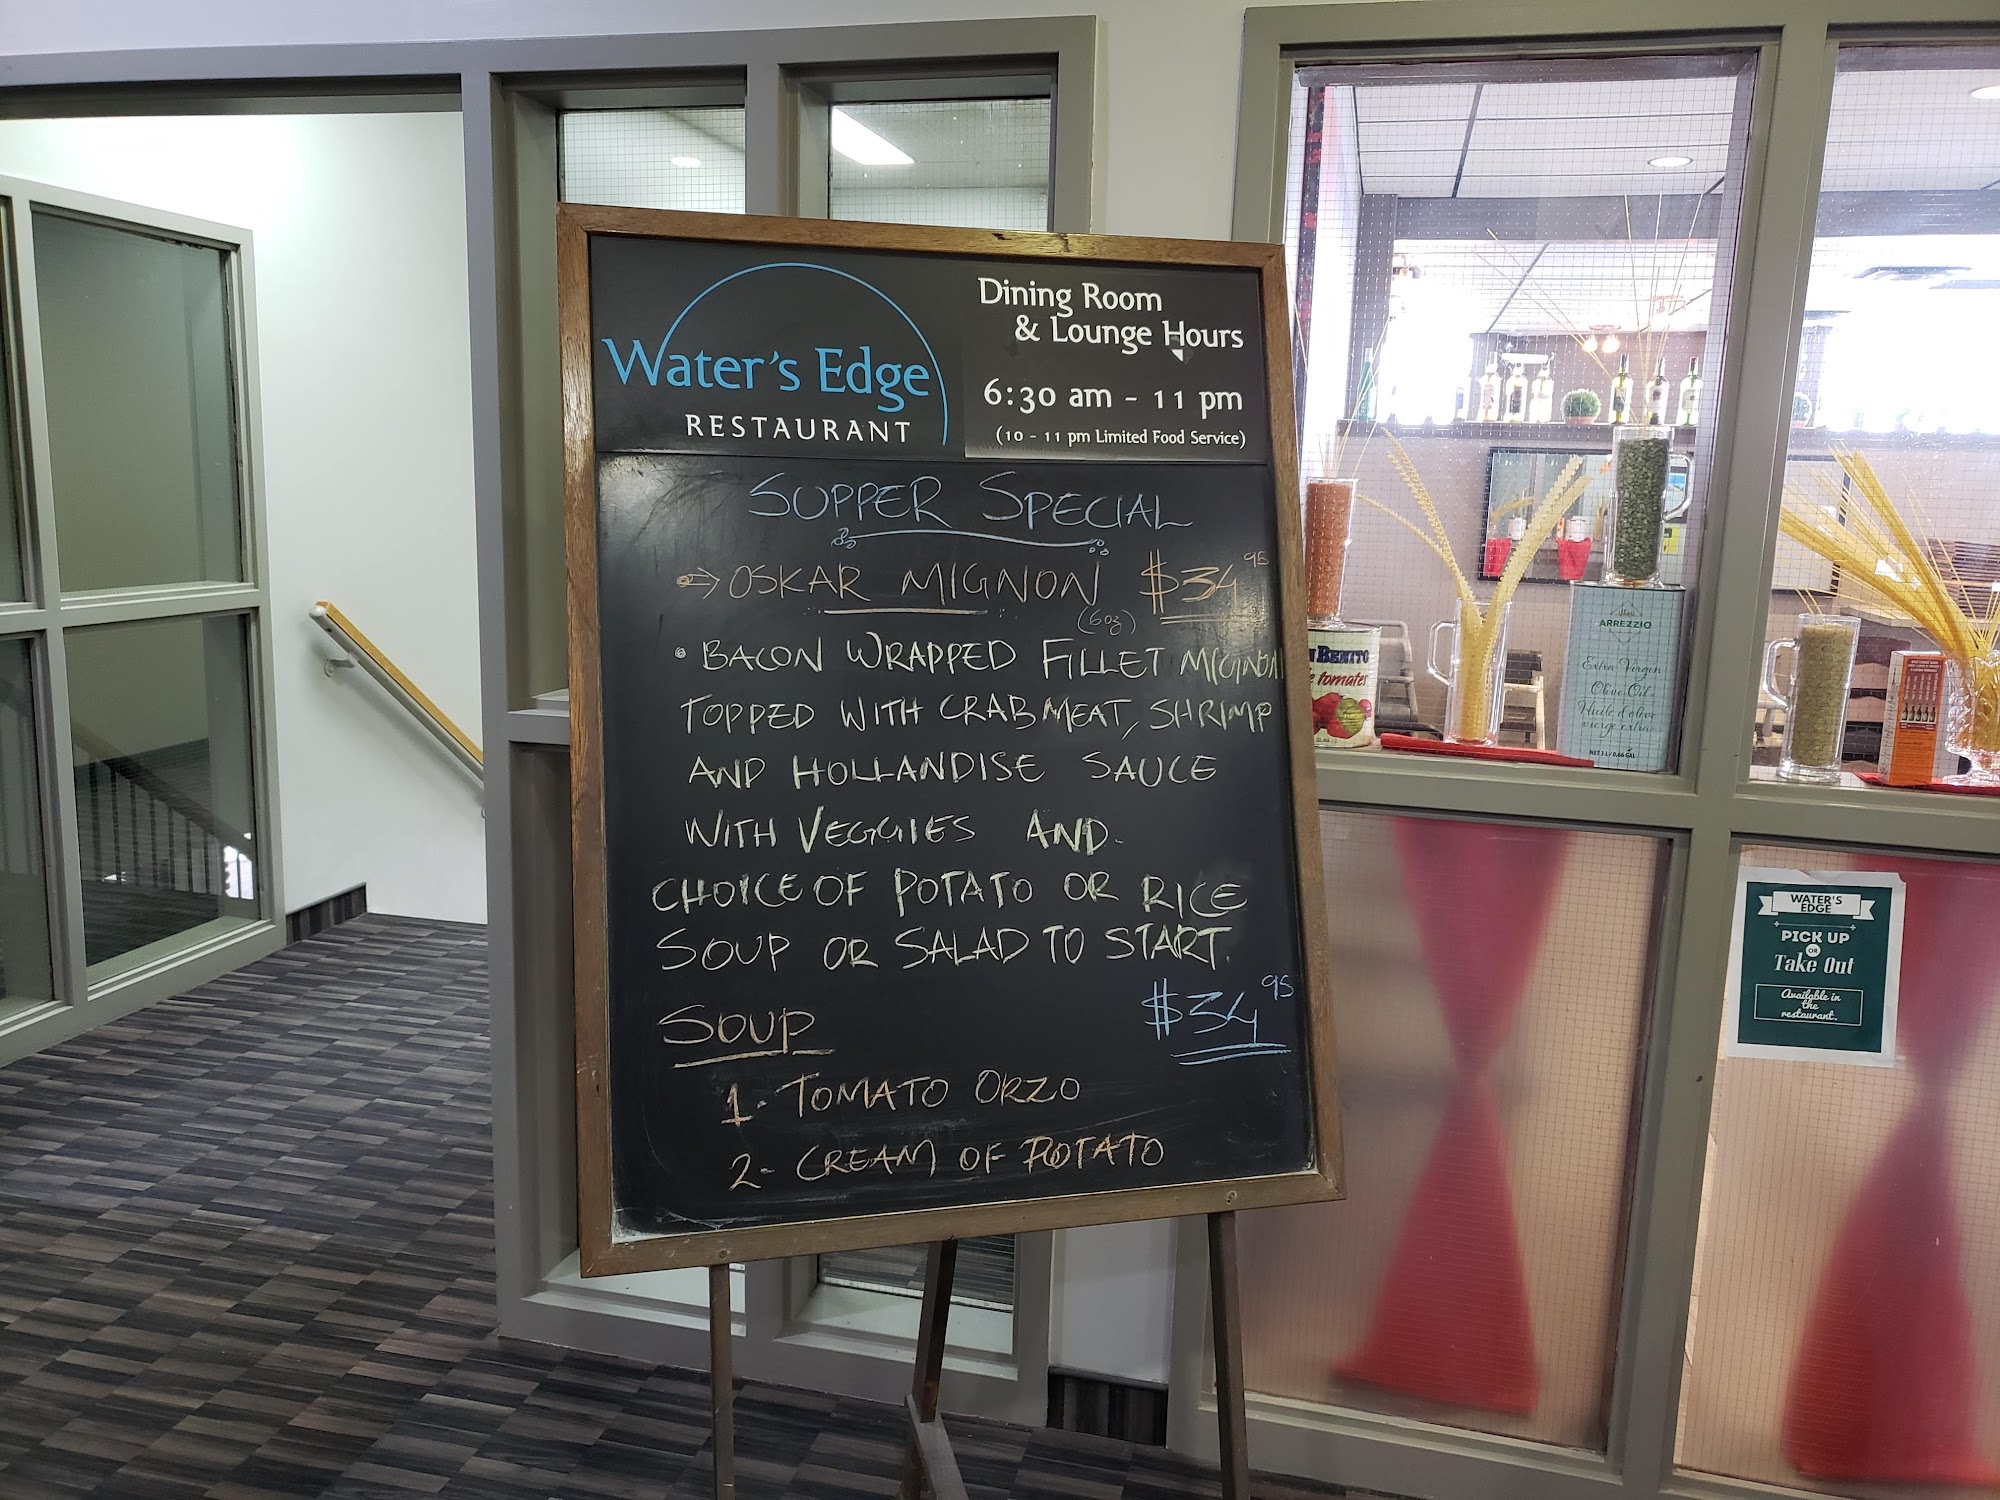 Water's Edge
RESTAURANT
Dining Room
& Lounge Hours
6:30 am - 11 pm
(10 - 11 pm Limited Food Service)
SUPPER SPECIAL
OSKAR MIGNON $34 95
(6oz)
• BACON WRAPPED FILLET MIGNON
TOPPED WITH CRABMEAT, SHRIMP
AND HOLLANDISE SAUCE
WITH VEGGIES AND
CHOICE OF POTATO OR RICE
SOUP OR SALAD TO START.
$34 95
SOUP
1- TOMATO ORZO
2- CREAM OF POTATO
BENITO
tomates
ARREZZIO
Extra Virgin
Olive Oil
Huile d'olive
vierge extra
NET 3 L / 0.66 GAL
WATER'S
EDGE
PICK UP
OR
Take Out
Available in
the
restaurant.